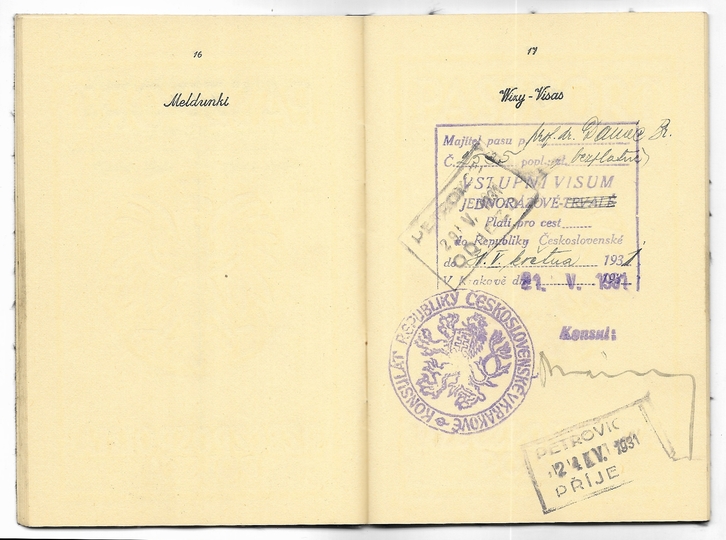 16
Meldunki
17
Wizy - Visas
Majitel pasu p. prof. dr.
Č. povol. viz. bezplatně
VSTUPNÍ VISUM
JEDNORÁZOVÉ-TRVALÉ
Platí pro cest
do Republiky Československé
do V. května 1931
V Krakově dne 21. V. 1931
Konsul:
KONSULÁT REPUBLIKY ČESKOSLOVENSKÉ V KRAKOVĚ
PETROVIC
V. 1931
PETROVIC
24 V. 1931
PŘÍJE